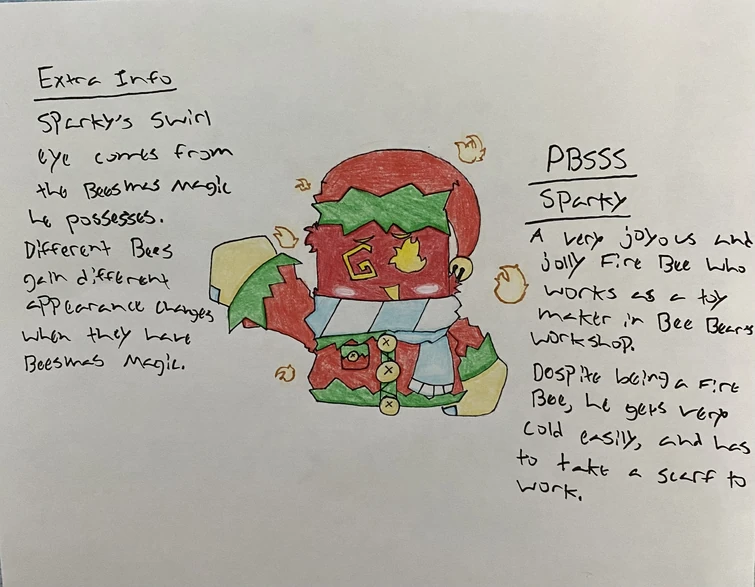 Extra Info
Sparky's Swirl
eye comes from
the Beesmas Magic
he possesses.
Different Bees
gain different
appearance changes
when they have
Beesmas Magic.
PBSSS
Sparky
A very joyous and
jolly Fire Bee who
works as a toy
maker in Bee Bears
workshop.
Despite being a Fire
Bee, he gets very
cold easily, and has
to take a scarf to
work.